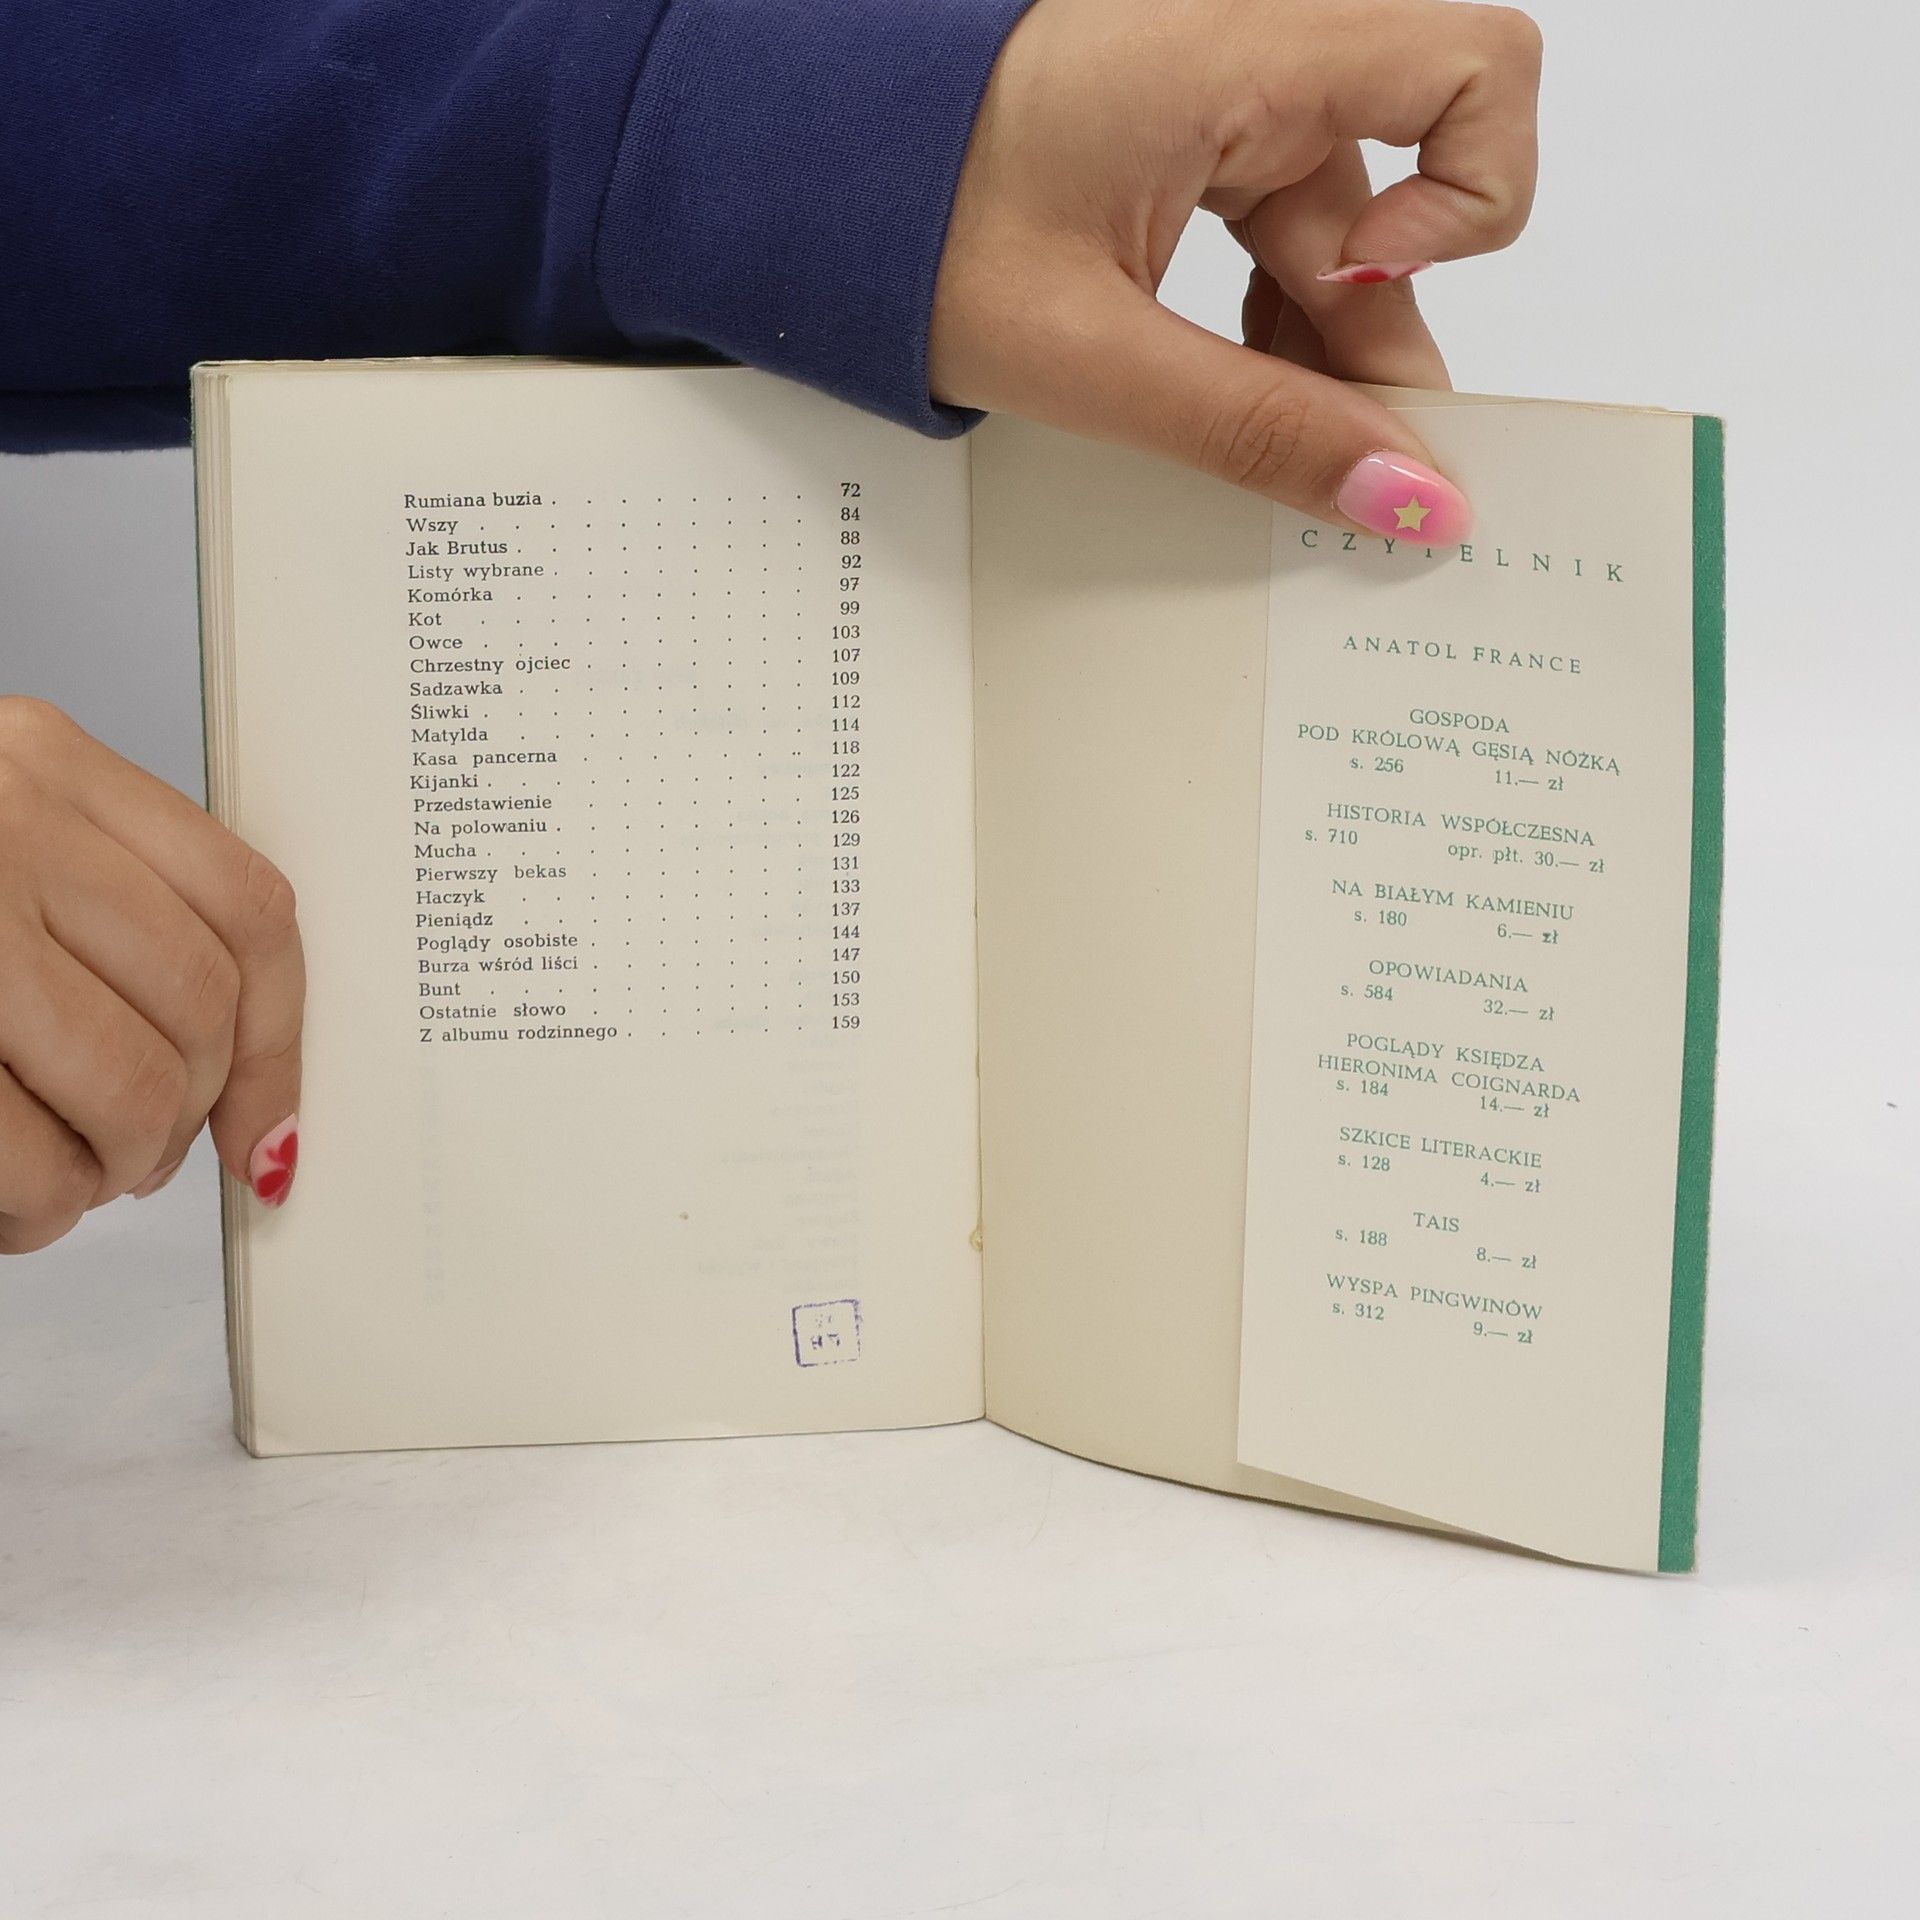 Rumiana buzia . . . . . . . . 72
Wszy . . . . . . . . . . 84
Jak Brutus . . . . . . . . . 88
Listy wybrane . . . . . . . . 92
Komórka . . . . . . . . . 97
Kot . . . . . . . . . . 99
Owce . . . . . . . . . . 103
Chrzestny ojciec . . . . . . . 107
Sadzawka . . . . . . . . . 109
Śliwki . . . . . . . . . . 112
Matylda . . . . . . . . . 114
Kasa pancerna . . . . . .. 118
Kijanki . . . . . . . . . . 122
Przedstawienie . . . . . . . 125
Na polowaniu . . . . . . . . 126
Mucha . . . . . . . . . . 129
Pierwszy bekas . . . . . . . 131
Haczyk . . . . . . . . . 133
Pieniądz . . . . . . . . . 137
Poglądy osobiste . . . . . . . 144
Burza wśród liści . . . . . . . 147
Bunt . . . . . . . . . . 150
Ostatnie słowo . . . . . . . 153
Z albumu rodzinnego . . . . . . 159
CZYTELNIK
ANATOL FRANCE
GOSPODA
POD KRÓLOWĄ GĘSIĄ NÓŻKĄ
s. 256 11.— zł
HISTORIA WSPÓŁCZESNA
s. 710 opr. płt. 30.— zł
NA BIAŁYM KAMIENIU
s. 180 6.— zł
OPOWIADANIA
s. 584 32.— zł
POGLĄDY KSIĘDZA
HIERONIMA COIGNARDA
s. 184 14.— zł
SZKICE LITERACKIE
s. 128 4.— zł
TAIS
s. 188 8.— zł
WYSPA PINGWINÓW
s. 312 9.— zł